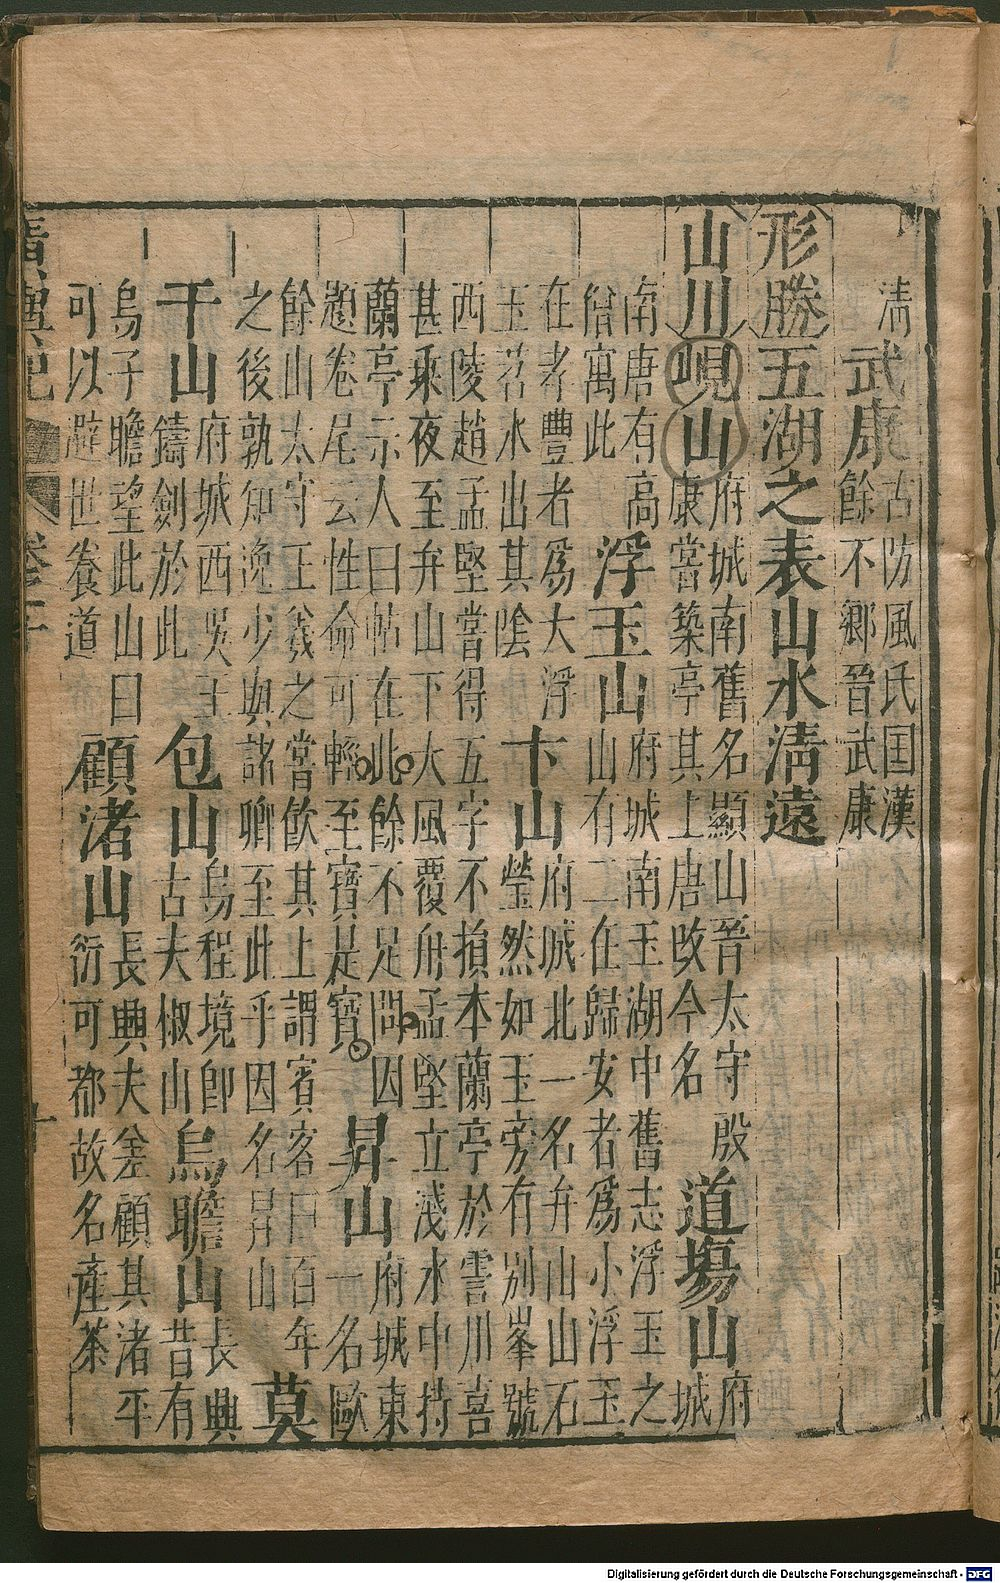 清 武康 古防風氏国漢餘不鄉晉武康
形勝 五湖之表山水清遠
山川 峴山 府城南舊名顯山晉太守殷康嘗築亭其上唐改今名 道塲山 府城
南唐有高僧寓此 浮玉山 府城南玉湖中舊志浮玉之山有二在歸安者爲小浮玉
在孝豐者爲大浮玉苕水出其陰 卞山 府城北一名弁山山石瑩然如玉旁有別峯號
西陵趙孟堅嘗得五字不損本蘭亭於霅川喜甚乘夜至弁山下大風覆舟孟堅立淺水中持
蘭亭示人曰帖在此餘不足問因題卷尾云性命可輕至寶是寶 昇山 府城東一名歐
餘山太守王羲之嘗飲其上謂賓客曰百年之後孰知逸少與諸卿至此乎因名昇山 莫
干山 府城西吳王鑄劍於此 包山 烏程境卽古夫椒山 烏瞻山 長興昔有
烏子瞻望此山曰可以避世養道 顧渚山 長興夫差顧其渚平衍可都故名產茶
廣輿記
Digitalisierung gefördert durch die Deutsche Forschungsgemeinschaft - DFG